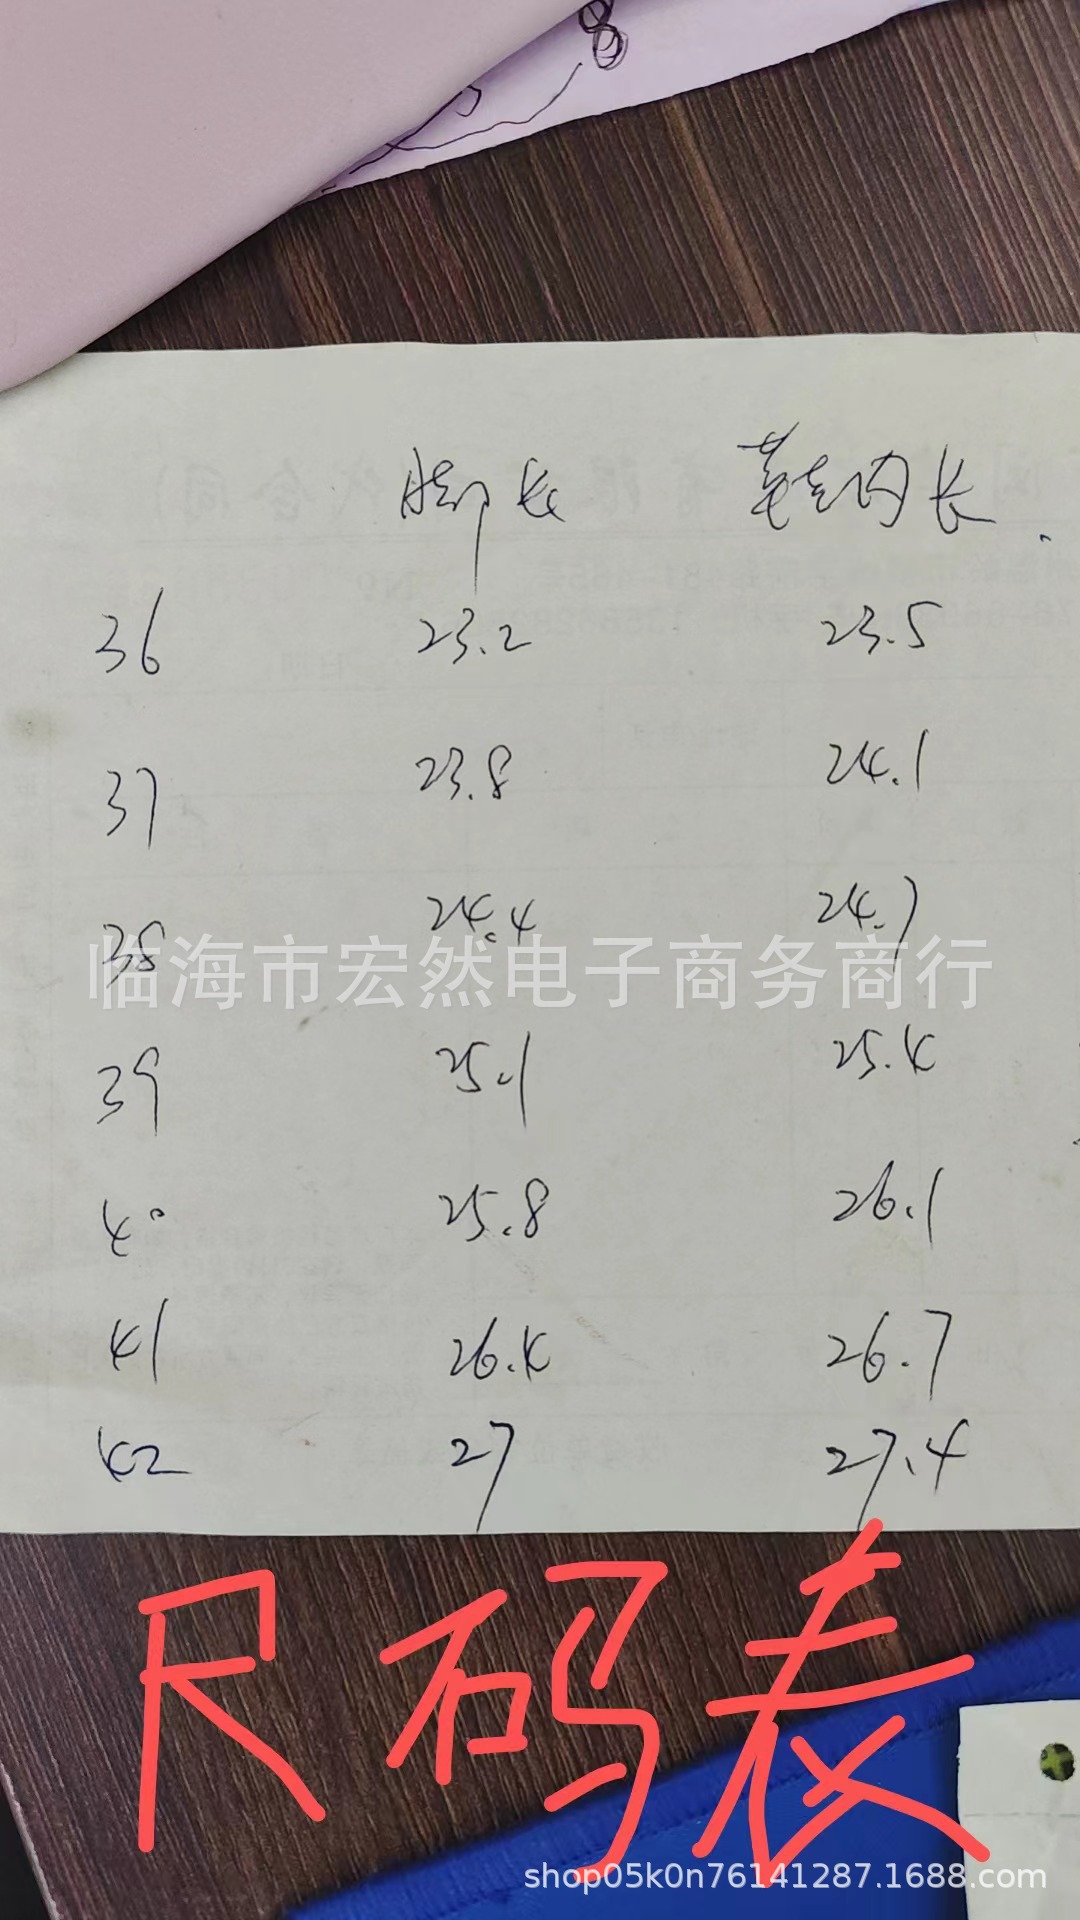 8
脚长 鞋内长
36 23.2 23.5
37 23.8 24.1
38 24.4 24.7
临海市宏然电子商务商行
39 25.1 25.4
40 25.8 26.1
41 26.4 26.7
42 27 27.4
尺码表
shop05k0n76141287.1688.com